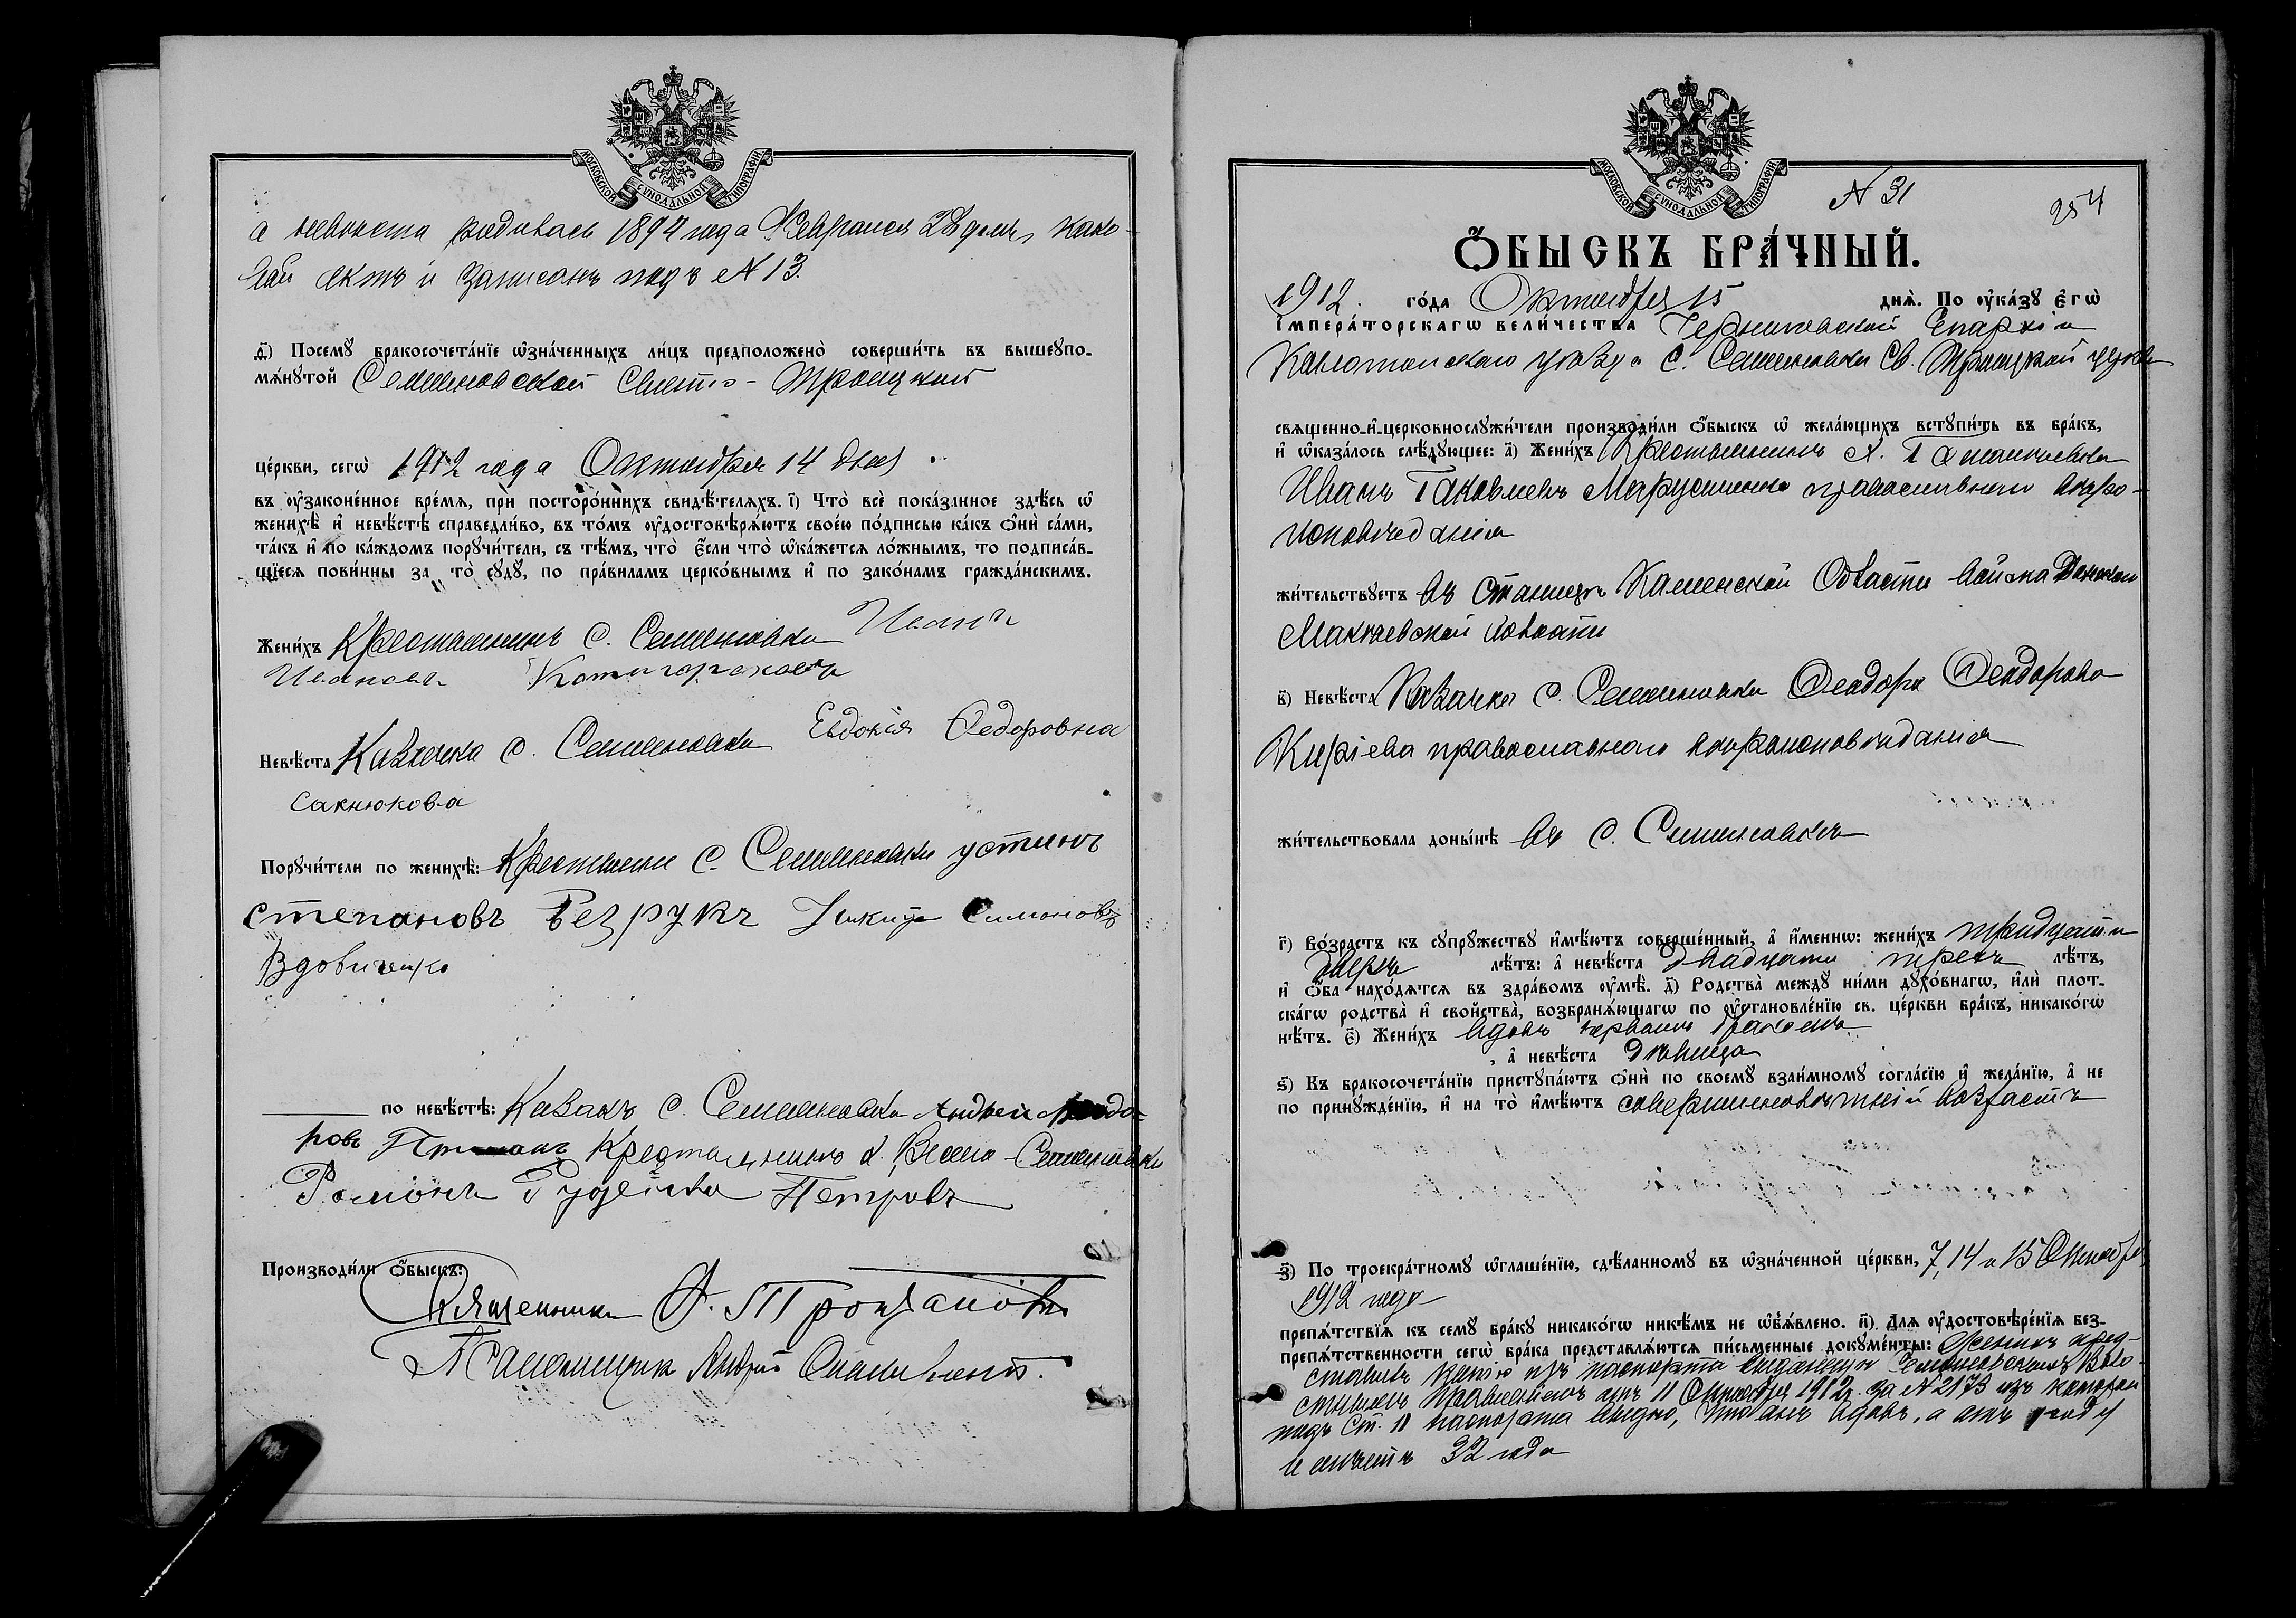 МОСКОВСКОЙ СѴНОДАЛЬНОЙ ТИПОГРАФІИ
а невѣста родилась 1894 года Февраля 28 дня, како-
вый актъ и записанъ подъ № 13.
ѳ҃) Посемꙋ бракосочета́нїе ѡ҆зна́ченныхъ ли́цъ предположено̀ соверши́ть въ вышеꙋпо-
мѧ́нꙋтой Семеновской Свято-Троицкой
це́ркви, сегѡ̀ 1912 года Октября 14 дня
въ ᲂу҆законе́нное вре́мѧ, при посторо́ннихъ свидѣ́телѧхъ. і҃) Что̀ всѐ пока́занное здѣ́сь ѡ҆
женихѣ̀ и҆ невѣ́стѣ справедли́во, въ то́мъ ᲂу҆достовѣрѧ́ютъ свое́ю по́дписью ка́къ ѻ҆нѝ са́ми,
та́къ и҆ по ка́ждомъ порꙋчи́тели, съ тѣ́мъ, что̀ є҆́сли что̀ ѡ҆ка́жетсѧ ло́жнымъ, то подписа́в-
шїесѧ пови́нны за то̀ сꙋдꙋ̀, по пра́виламъ церко́внымъ и҆ по зако́намъ гражда́нскимъ.
Жени́хъ Крестьянинъ с. Семеновки Иванъ
Ивановъ
Невѣ́ста Казачка с. Семеновки Евдокія Федоровна
Сакнюкова
Порꙋчи́тели по женихѣ̀: Крестьяне с. Семеновки устинъ
степановъ Безрукъ Никита Симоновъ
Вдовиченко
по невѣ́стѣ: Казакъ с. Семеновки Андрей Феодо-
ровъ Крестьянинъ с. Семеновки
Романъ Петровъ
Производи́ли ѻ҆́быскъ:
Священникъ
Псаломщикъ Андрей
МОСКОВСКОЙ СѴНОДАЛЬНОЙ ТИПОГРАФІИ
№ 31
254
Ѻ҆́БЫСКЪ БРА́ЧНЫЙ.
1912. го́да Октября 15 днѧ̀. По ᲂу҆ка́зꙋ є҆гѡ̀
і҆мпера́торскагѡ вели́чества Черниговской Епархіи
Конотопскаго уѣзда с. Семеновки Св. Троицкой церкви
свѧщенно-и҆-церковнослꙋжи́тели производи́ли ѻ҆́быскъ ѡ҆ жела́ющихъ встꙋпи́ть въ бра́къ,
и҆ ѡ҆каза́лось слѣ́дꙋющее: а҃) Жени́хъ Крестьянинъ
Иванъ Іаковлевъ Марусенко православнаго вѣро-
исповѣданія
жи́тельствꙋетъ въ станицѣ Каменской Области войска Донского
Макѣевской волости
в҃) Невѣ́ста Казачка с. Семеновки Феодора Феодорова
Киріева православнаго вѣроисповѣданія
жи́тельствовала доны́нѣ въ с. Семеновкѣ
г҃) Во́зрастъ къ сꙋпрꙋ́жествꙋ и҆мѣ́ютъ соверше́нный, а҆ и҆́меннѡ: жени́хъ тридцати
двухъ лѣ́тъ: а҆ невѣ́ста двадцати трехъ лѣ́тъ,
и҆ ѻ҆́ба нахо́дѧтсѧ въ здра́вомъ ᲂу҆мѣ̀. д҃) Родства̀ междꙋ ни́ми дꙋхо́внагѡ, и҆лѝ плот-
ска́гѡ родства̀ и҆ сво́йства̀, возбранѧ́ющагѡ по ᲂу҆становле́нїю св. це́ркви бра́къ, никако́гѡ
нѣ́тъ. є҃) Жени́хъ вдовъ первымъ бракомъ
, а҆ невѣ́ста дѣвица
ѕ҃) Къ бракосочета́нїю пристꙋпа́ютъ ѻ҆нѝ по своемꙋ̀ взаи́мномꙋ согла́сїю и҆ жела́нїю, а҆ не
по принꙋжде́нїю, и҆ на то̀ и҆мѣ́ютъ совершеннолѣтній возрастъ
з҃) По троекра́тномꙋ ѡ҆глаше́нїю, сдѣ́ланномꙋ въ ѡ҆зна́ченной це́ркви, 7, 14 и 15 Октября
1912 года
препѧ́тствїѧ къ семꙋ̀ бра́кꙋ никако́гѡ никѣ́мъ не ѡ҆б̾ѧ́влено. и҃) Длѧ ᲂу҆достовѣре́нїѧ без-
препѧ́тственности сегѡ̀ бра́ка представлѧ́ютсѧ пи́сьменные докꙋме́нты: Женихъ пред-
ставилъ копію изъ паспорта выданную Семеновскимъ Воло-
стнымъ Правленіемъ отъ 11 Октября 1912 г. за № 2173 изъ которой
подъ ст. 11 паспорта видно, что онъ вдовъ, а отъ роду
имѣетъ 32 года